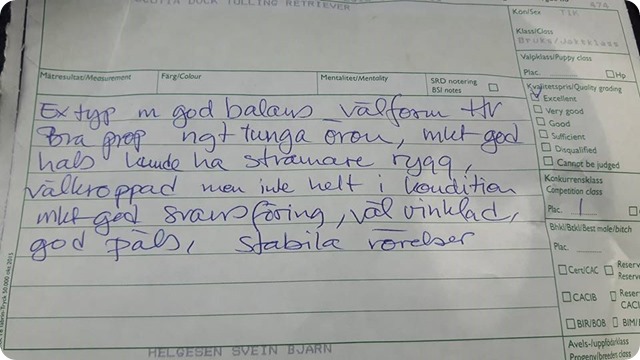 SCOTIA DUCK TOLLING RETRIEVER
Kön/Sex TIK
Klass/Class
Bruks/Jaktklass
Valpklass/Puppy class
Plac. Hp
Mätresultat/Measurement Färg/Colour Mentalitet/Mentality SRD notering
BSI notes
Kvalitetspris/Quality grading
Excellent
Very good
Good
Sufficient
Disqualified
Cannot be judged
Ex typ m god balans välform
Bra prop ngt tunga öron, mkt god
hals kunde ha stramare rygg,
välkroppad men inte helt i kondition
mkt god svansföring, väl vinklad,
god päls, stabila rörelser
Konkurrensklass
Competition class
Plac. 1
Bhkl/Btkl/Best male/bitch
Plac.
Cert/CAC Reserv
CACIB Reserv
CAC
BIR/BOB BIM/
Avels-/uppfödarklass
Progeny/breeders class
HELGESEN SVEIN BJARN